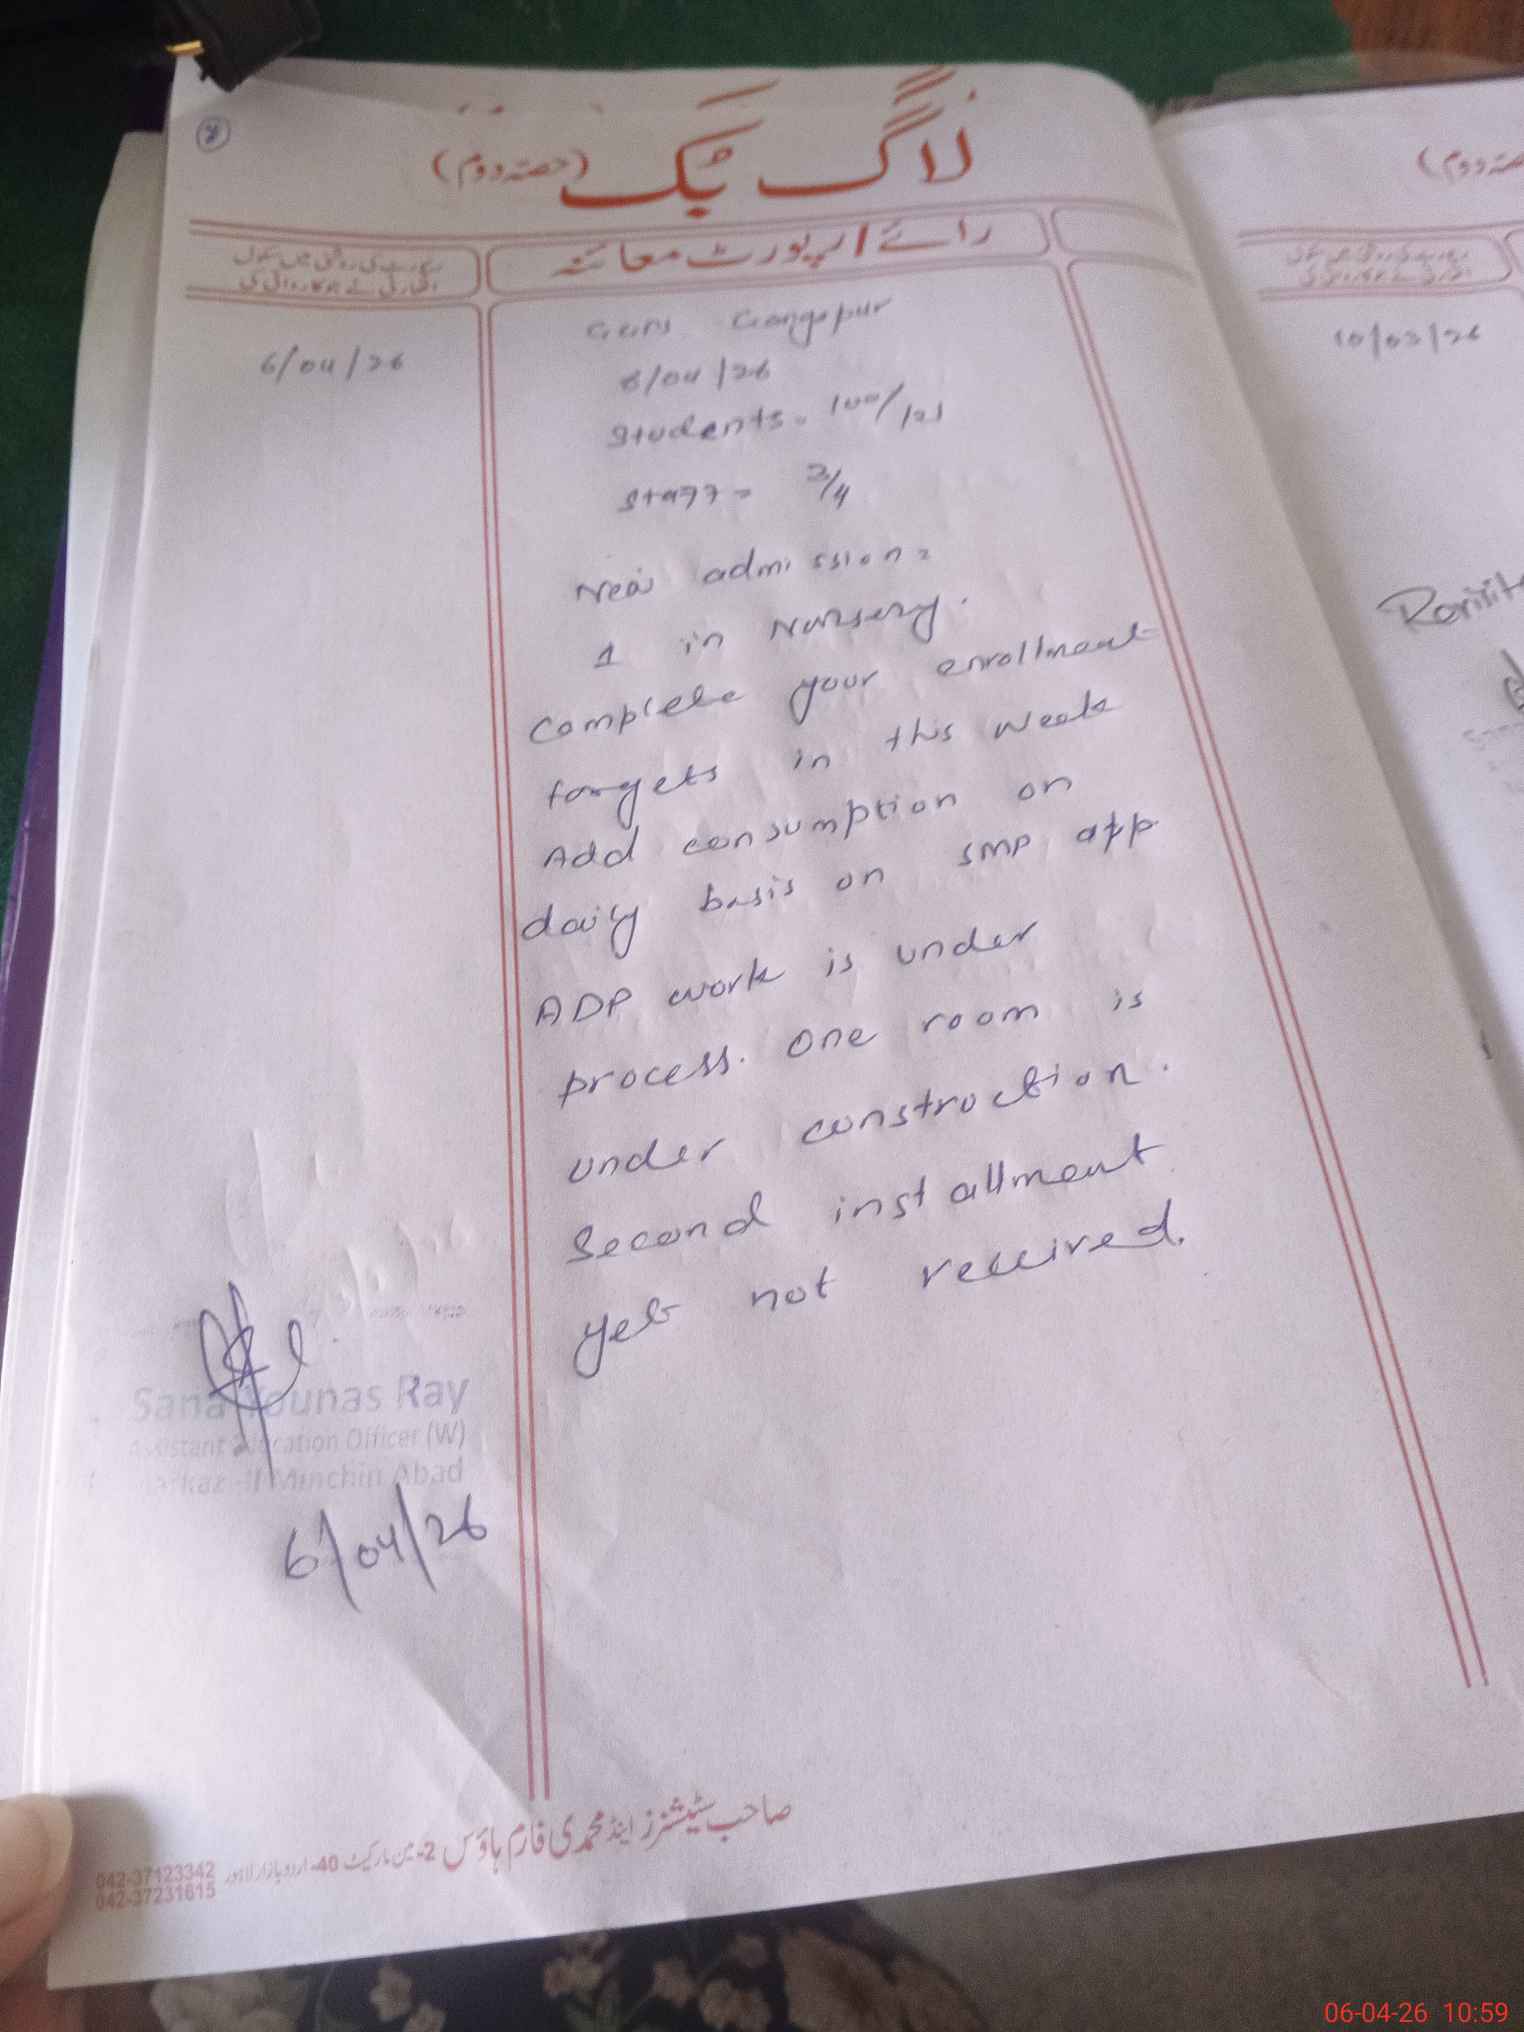 لاگ بک (حصہ دوم)
رائے / رپورٹ معائنہ
6/04/26
Gangapur
6/04/26
Students = 100/121
Staff = 3/4
New admission =
1 in Nursery.
Complete your enrollment
targets in this week
Add consumption on
daily basis on SMP app.
ADP work is under
process. One room is
under construction.
Second installment
yet not received.
Sana Younas Ray
Assistant Education Officer (W)
Markaz-II Minchin Abad
6/04/26
صاحب سٹیشنرز اینڈ محمدی فارم ہاؤس 2-مین مارکیٹ 40-اردو بازار لاہور
042-37123342
042-37231615
(حصہ دوم)
10/02/26
06-04-26 10:59